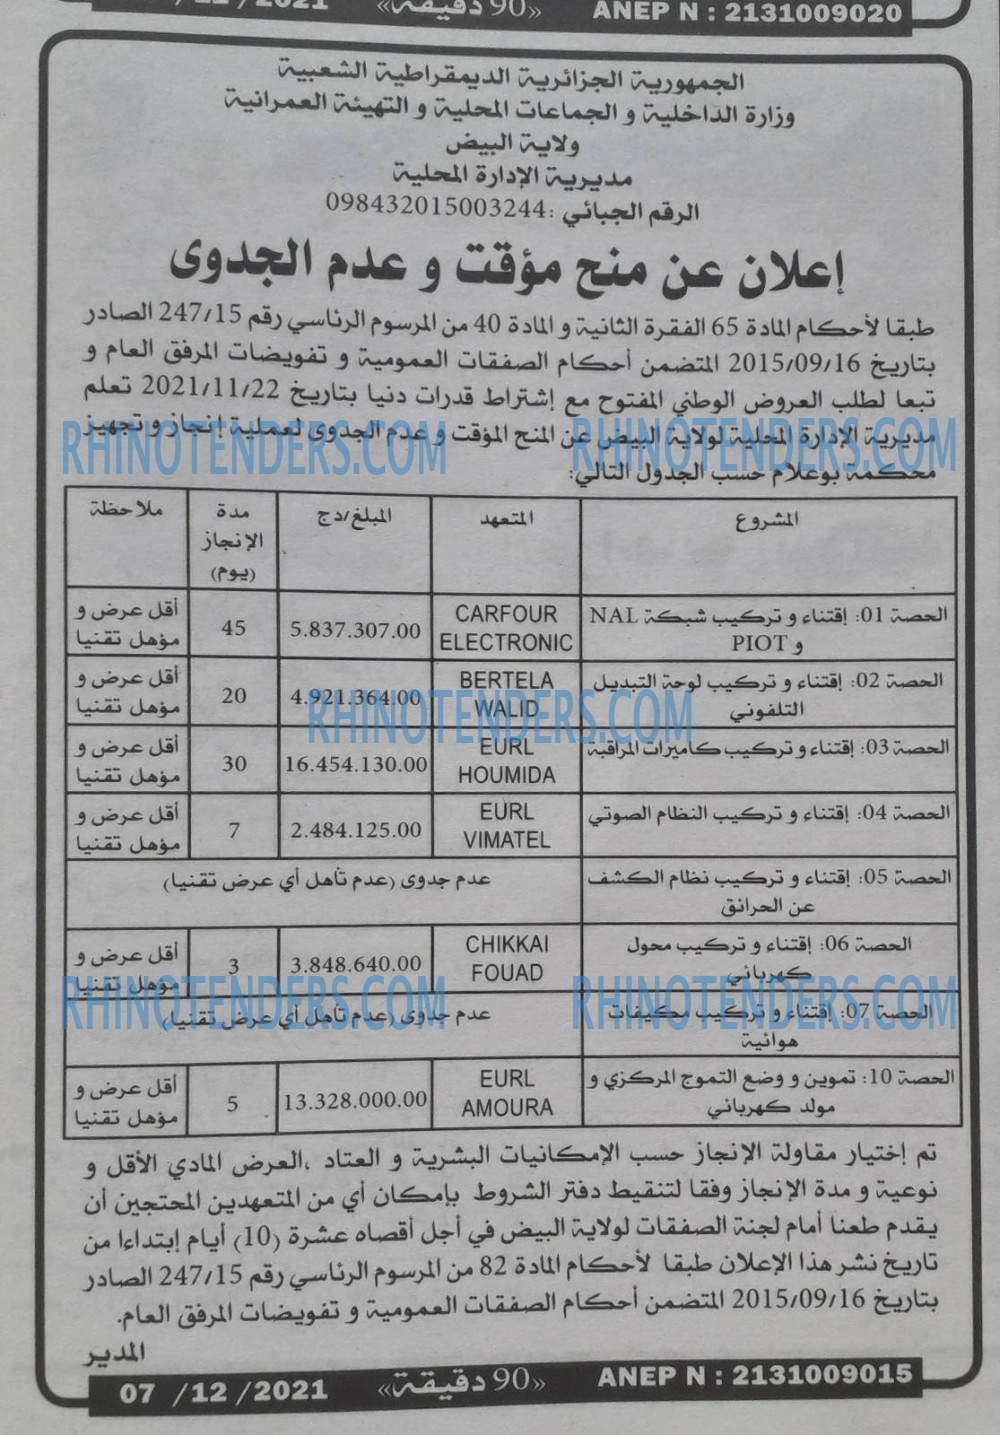 12 /2021
«90 دقيقة»
ANEP N : 2131009020
الجمهورية الجزائرية الديمقراطية الشعبية
وزارة الداخلية و الجماعات المحلية و التهيئة العمرانية
ولاية البيض
مديرية الإدارة المحلية
الرقم الجبائي :098432015003244
إعلان عن منح مؤقت و عدم الجدوى
طبقا لأحكام المادة 65 الفقرة الثانية و المادة 40 من المرسوم الرئاسي رقم 247/15 الصادر
بتاريخ 2015/09/16 المتضمن أحكام الصفقات العمومية و تفويضات المرفق العام و
تبعا لطلب العروض الوطني المفتوح مع إشتراط قدرات دنيا بتاريخ 2021/11/22 تعلم
مديرية الإدارة المحلية لولاية البيض عن المنح المؤقت و عدم الجدوى لعملية إنجاز و تجهيز
محكمة بوعلام حسب الجدول التالي:
RHINOTENDERS.COM RHINOTENDERS.COM
المشروع المتعهد المبلغ/دج مدة ملاحظة
الإنجاز
(يوم)
الحصة 01: إقتناء و تركيب شبكة NAL CARFOUR 5.837.307.00 45 أقل عرض و
و PIOT ELECTRONIC مؤهل تقنيا
الحصة 02: إقتناء و تركيب لوحة التبديل BERTELA 4.921.364.00 20 أقل عرض و
التلفوني WALID مؤهل تقنيا
RHINOTENDERS.COM
الحصة 03: إقتناء و تركيب كاميرات المراقبة EURL 16.454.130.00 30 أقل عرض و
HOUMIDA مؤهل تقنيا
الحصة 04: إقتناء و تركيب النظام الصوتي EURL 2.484.125.00 7 أقل عرض و
VIMATEL مؤهل تقنيا
الحصة 05: إقتناء و تركيب نظام الكشف عدم جدوى (عدم تأهل أي عرض تقنيا)
عن الحرائق
الحصة 06: إقتناء و تركيب محول CHIKKAI 3.848.640.00 3 أقل عرض و
كهربائي FOUAD مؤهل تقنيا
RHINOTENDERS.COM RHINOTENDERS.COM
الحصة 07: إقتناء و تركيب مكيفات عدم جدوى (عدم تأهل أي عرض تقنيا)
هوائية
الحصة 10: تموين و وضع التموج المركزي و EURL 13.328.000.00 5 أقل عرض و
مولد كهربائي AMOURA مؤهل تقنيا
تم إختيار مقاولة الإنجاز حسب الإمكانيات البشرية و العتاد ،العرض المادي الأقل و
نوعية و مدة الإنجاز وفقا لتنقيط دفتر الشروط بإمكان أي من المتعهدين المحتجين أن
يقدم طعنا أمام لجنة الصفقات لولاية البيض في أجل أقصاه عشرة (10) أيام إبتداءا من
تاريخ نشر هذا الإعلان طبقا لأحكام المادة 82 من المرسوم الرئاسي رقم 247/15 الصادر
بتاريخ 2015/09/16 المتضمن أحكام الصفقات العمومية و تفويضات المرفق العام.
المدير
07 /12 /2021
«90 دقيقة»
ANEP N : 2131009015